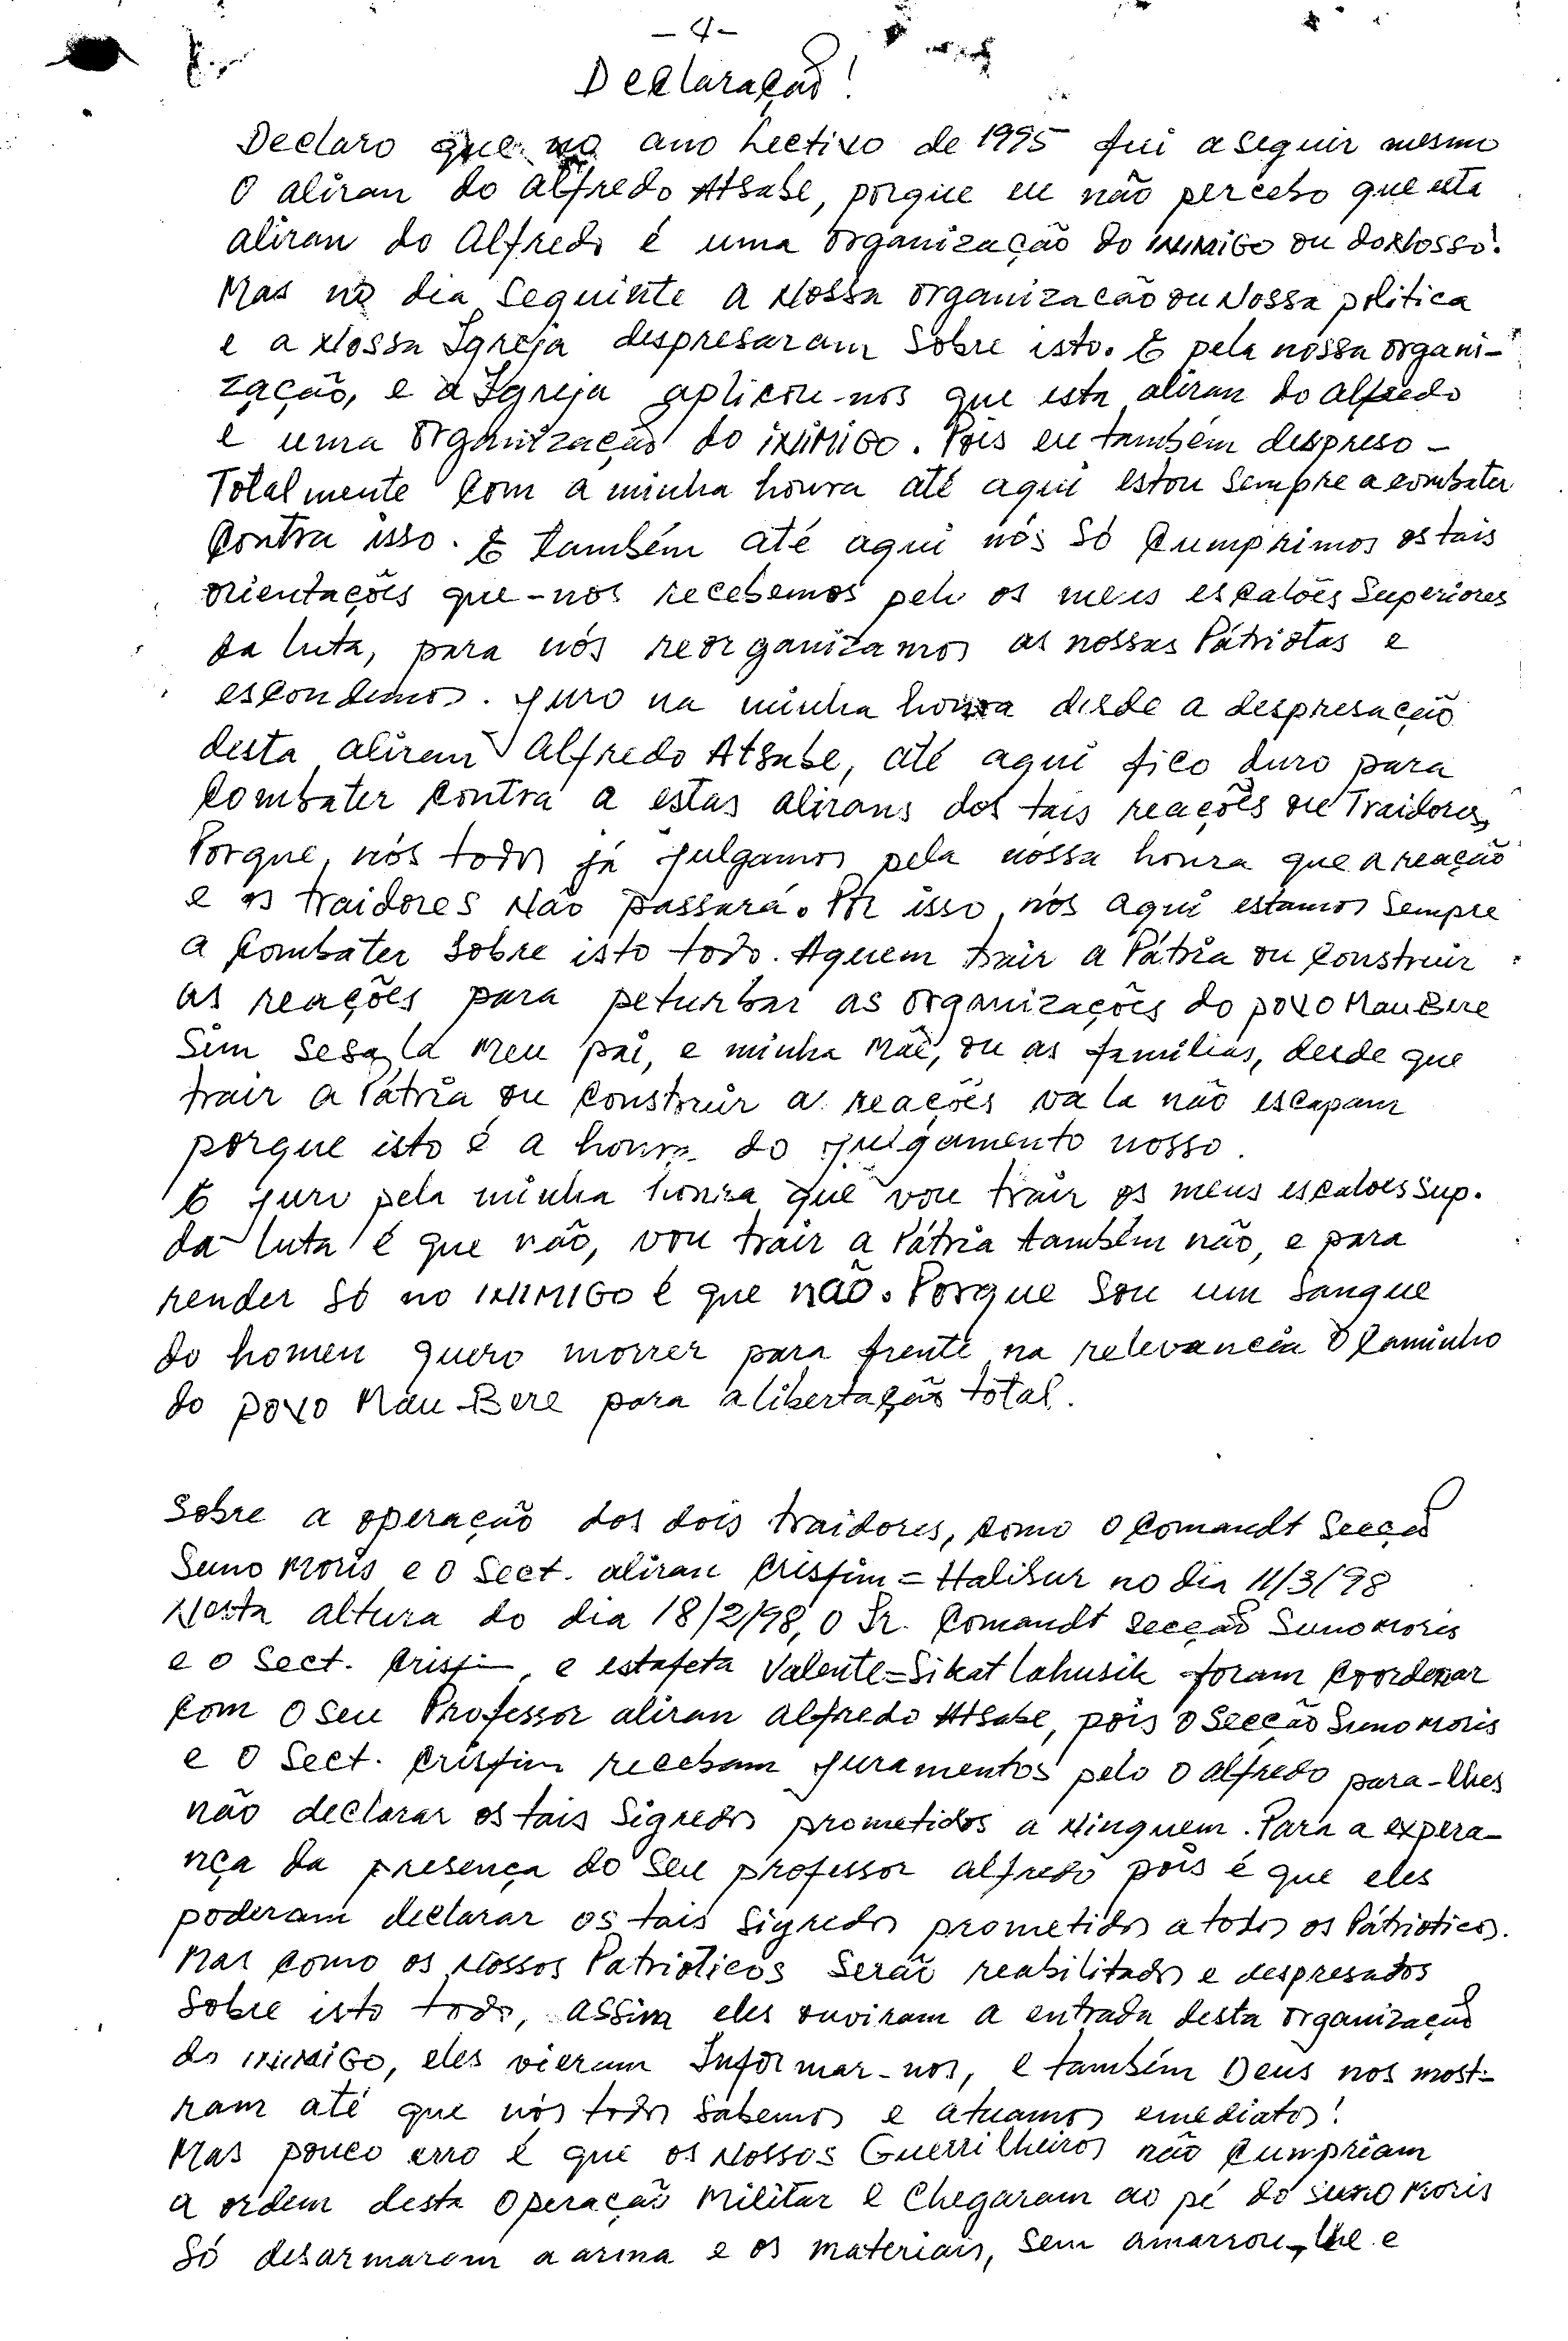 -4-
Declaração!
Declaro que no ano Lectivo de 1995 fui a seguir mesmo
O aliran do Alfredo Atsabe, porque eu não percebo que esta
aliran do Alfredo é uma organização do INIMIGO ou do Nosso!
Mas no dia seguinte a Nossa organizacão ou Nossa politica
e a Nossa Igreja despresaram sobre isto. E pela nossa organi-
zação, e a Igreja aplicou-nos que esta aliran do Alfredo
e uma organização do iNiMiGO. Pois eu também despreso-
Totalmente com a minha honra até aqui estou sempre a combater
contra isso. E também até aqui nós só cumprimos os tais
orientações que-nos recebemos pelo os meus escalões Superiores
da luta, para nós reorganizamos as nossas Pátriotas e
escondemos. Juro na minha honra desde a despresação
desta aliran Alfredo Atsabe, até aqui fico duro para
Combater contra a estas alirans dos tais reações ou Traidores,
Porque, nós todos já julgamos pela nossa honra que a reação
e os traidores Não passará. Por isso, nós aqui estamos sempre
a combater sobre isto todo. Aquem trair a Pátria ou construir
as reações para peturbar as organizações do povo MauBere
Sim seja lá Meu pai, e minha Mãe, ou as familias, desde que
trair a Pátria ou construir a reações vala não escapam
porque isto é a honra do julgamento nosso.
E juro pela minha honra que vou trair os meus escaloes Sup.
da luta é que não, vou trair a Pátria também não, e para
render só no INIMIGO é que não. Porque sou um sangue
do homen quero morrer para frente na relevancia o caminho
do povo Mau-Bere para a libertação total.
Sobre a operação dos dois traidores, como o Comandt Secção
Suno Moris e o Sect. aliran Crisfim = Halibur no dia 11/3/98
Nesta altura do dia 18/2/98, o Sr. Comandt Secção Suno Moris
e o Sect. Crisfim, e estafeta Valente=Sikat lahusik foram coordenar
com o seu Professor aliran Alfredo Atsabe, pois o Secção Suno Moris
e o Sect. Crisfim recebam juramentos pelo o Alfredo para-lhes
não declarar os tais Sigredos prometidos a Ninguem. Para a expera-
nça da presença do seu professor Alfredo pois é que eles
poderam declarar os tais sigredos prometidos a todos os Pátrioticos.
Mas como os Nossos Patrióticos serão reabilitados e despresados
sobre isto todo, assim eles ouviram a entrada desta organização
do INIMIGO, eles vieram Informar-nos, e também Deus nos most-
ram até que nós todos sabemos e atuamos emediatos!
Mas pouco erro é que os Nossos Guerrilheiros não cumpriam
a ordem desta operação Militar e chegaram ao pé do Suno Moris
só desarmaram a arma e os materiais, sem amarrou-lhe e